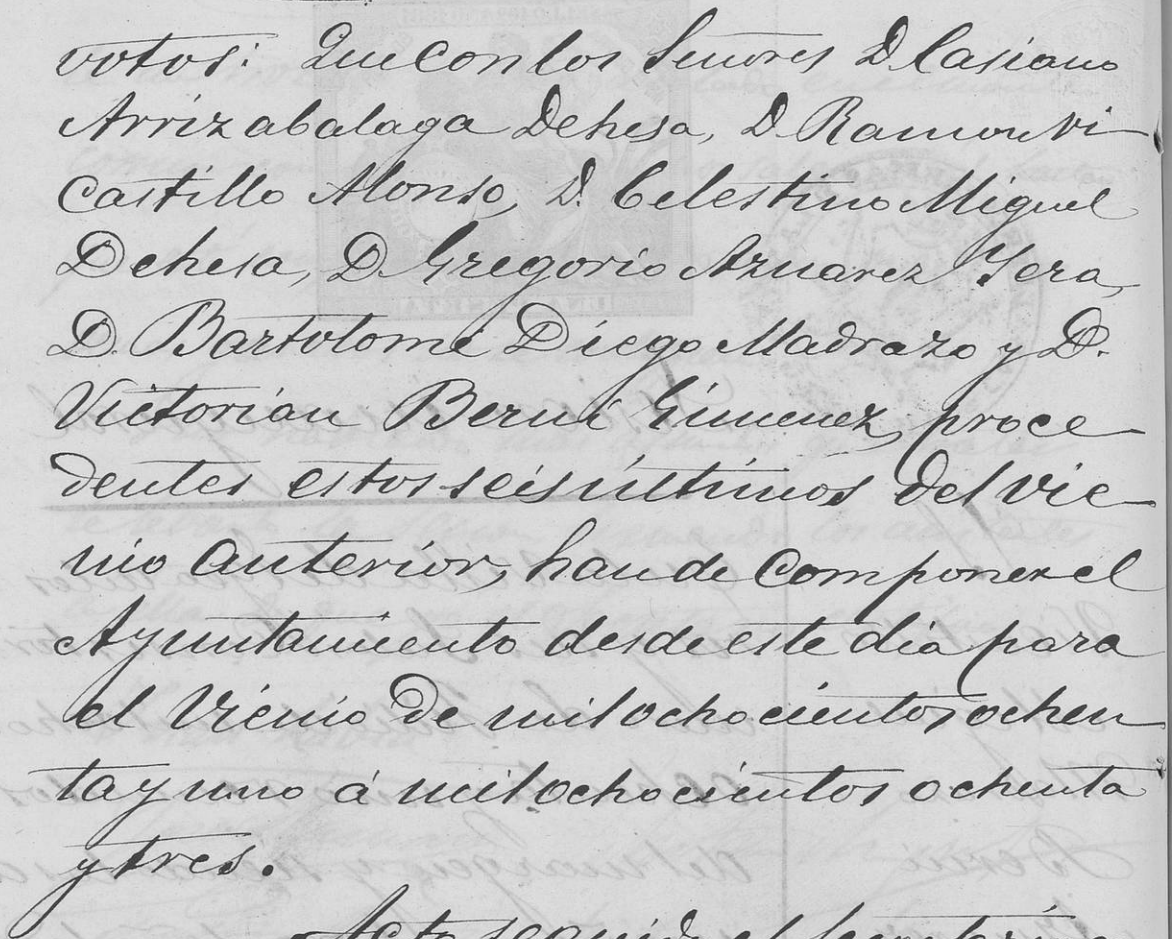 votos: Que con los Señores D. Casiano
Arrizabalaga Dehesa, D. Ramon Vi-
castillo Alonso, D. Celestino Miguel
Dehesa, D. Gregorio Aznarez Yera,
D. Bartolomé Diego Madrazo y D.
Victorian Berni Gimenez, proce-
dentes estos seis últimos del vie-
nio anterior, han de componer el
Ayuntamiento desde este dia para
el Vienio de mil ochocientos ochen-
ta y uno á mil ochocientos ochenta
y tres.
Acto seguido el Secretario